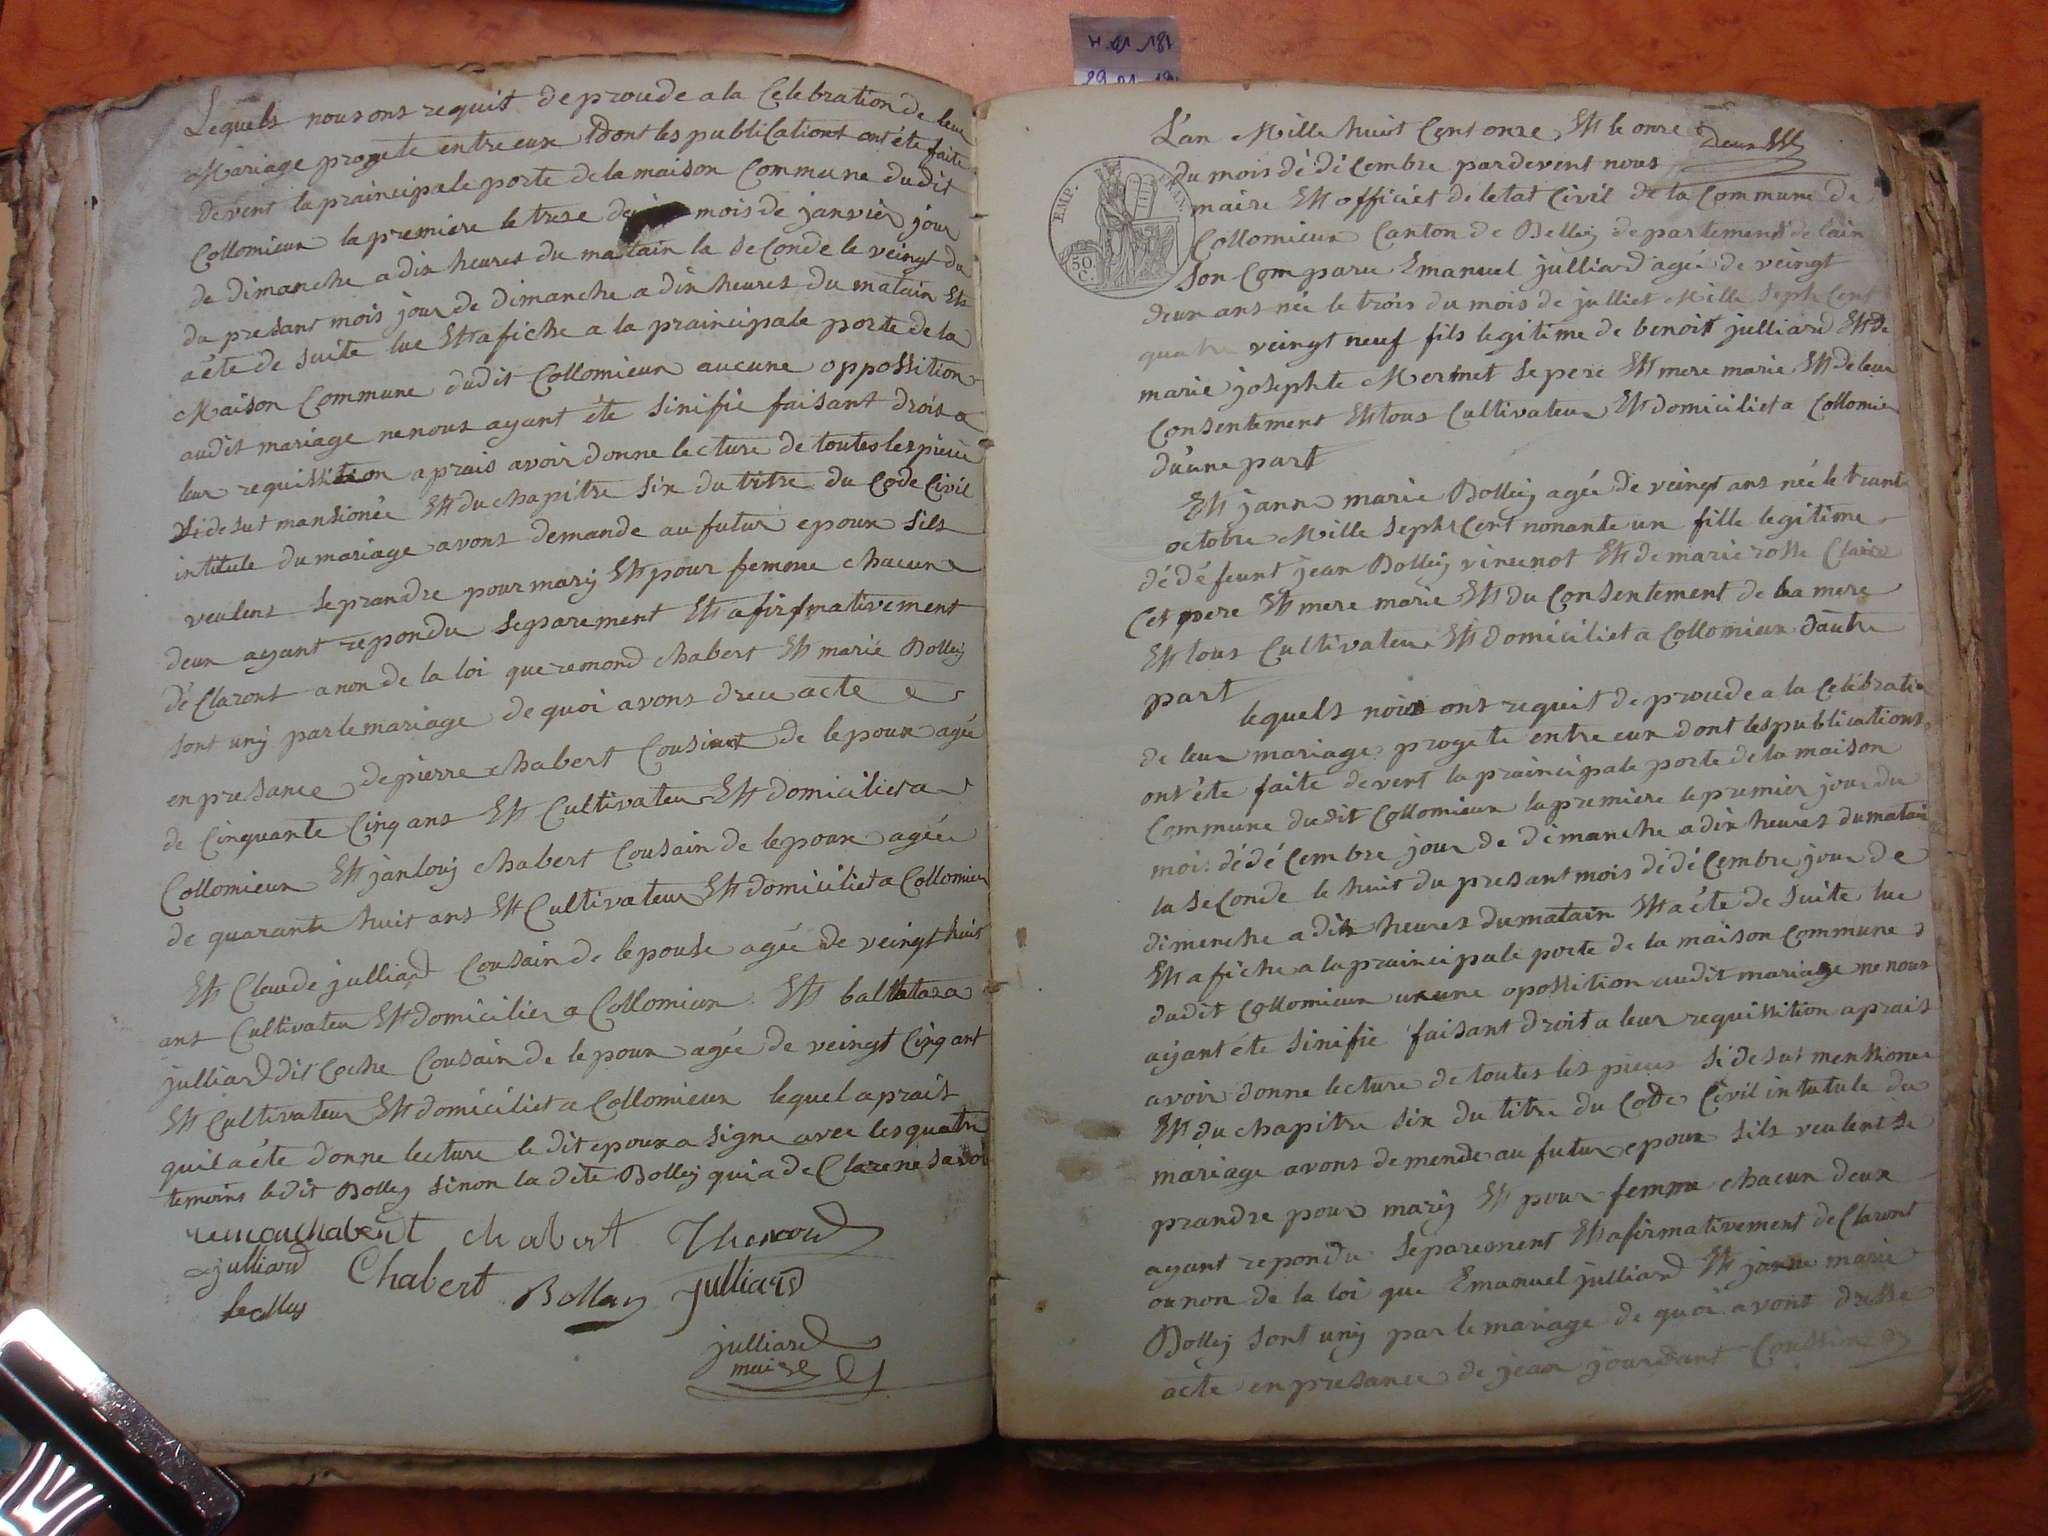 Lequels nous ons requist de procude a la Celebration de leur
Mariage progete entre eux dont les publications ont éte faite
devent la prainicipale porte de la maison Commune dudit
Collomieux la premiere le treze mois de janvier jour
de dimanche a dix heures du matain la seconde le veingt du
du presant mois jour de dimanche a dix heures du matain Ett
a éte de suite lue Ett afiche a la prainicipale porte de la
Maison Commune dudit Collomieux aucune oppossition
audit mariage ne nous ayant éte sinifie faisant droit a
leur requisition aprais avoir donne lecture de toutes les pieces
si de sut mansionée Ett du chapitre six du titre du Code Civil
intitule du mariage avons demande au futur epoux sils
veulent se prandre pour marij Ett pour femme chacun
deux ayant repondu separement Ett afirmativement
dé Claront a non de la loi que remond chabert Ett marie Bolley
sont unij par le mariage de quoi avons drece acte
en presance de pierre chabert Cousint de lepoux agée
de Cinquante Cinq ans Ett Cultivateur Ett domiciliet a
Collomieux Ett janlouij chabert Cousain de lepoux agée
de quarante huit ans Ett Cultivateur Ett domiciliet a Collomieux
Ett Claude julliard Cousain de lepouse agée de veingt huit
ans Cultivateu Ett domicilier a Collomieux Ett baltazara
julliard dit Coche Cousain de lepoux agée de veingt Cinq ant
Ett Cultivateur Ett domiciliet a Collomieux lequel aprait
quil a éte donne lecture le dit epoux a signe avec les quatre
temoins ledit Bolley sinon la dite Bolley qui a de Clare ne savoi
chabert
julliard Chabert Bolley julliard
julliard
maire
L'an Mille huit Cent onze Ett le onze
du mois dé déCembre pardevent nous
maire Ett officiet de letat Civil de la Commune de
Collomieux Canton de Belley departement de lain
son Comparu Emanuel julliard agée de veingt
deux ans née le trois du mois de julliet Mille Sept Cent
quatre veingt neuf fils legitime de benoit julliard Ett de
marie josephte Mermet se pere Ett mere marie Ett de leur
Consentement Ett tous Cultivateur Ett domiciliet a Collomieu
du'une part
Ett janne marie Bolley agée de veingt ans née le trante
octobre Mille Sept Cent nonante un fille legitime
dé défeunt jean Bolley vincnot Ett de marie rosse Claire
Cet pere Ett mere marie Ett du Consentement de sa mere
Ett tous Cultivateur Ett domiciliet a Collomieux dautre
part
lequels nous ont requit de procude a la Celébratio
de leur mariage progete entre eux dont les publications
ont éte faite devent la prainicipale porte de la maison
Commune dudit Collomieux la premiere le premier jour du
mois dé déCembre jour de dimanche a dix heures du matai
la seConde le huit du presant mois dé déCembre jour de
dimenche a dix heures du matain Ett a éte de suite lue
Ett afiche a la prainicipale porte de la maison Commune
dudit Collomieux ucune opossition audit mariage ne nous
aijant éte sinifié faisant droit a leur requisition aprais
avoir donne lecture de toutes les pieces si de sut mensionee
Ett du chapitre six du titre du Code Civil intutule du
mariage avons demende au futur epoux sils veulent se
prandre pour marij Ett pour femme chacun deux
ayant repondu separement Ett afirmativement de Claront
ou non de la loi que Emanuel julliard Ett janne marie
Bolley sont unij par le mariage de quoi avont dresse
acte en presance de jean jourdant Coussin
EMP. FRAN.
50
C.